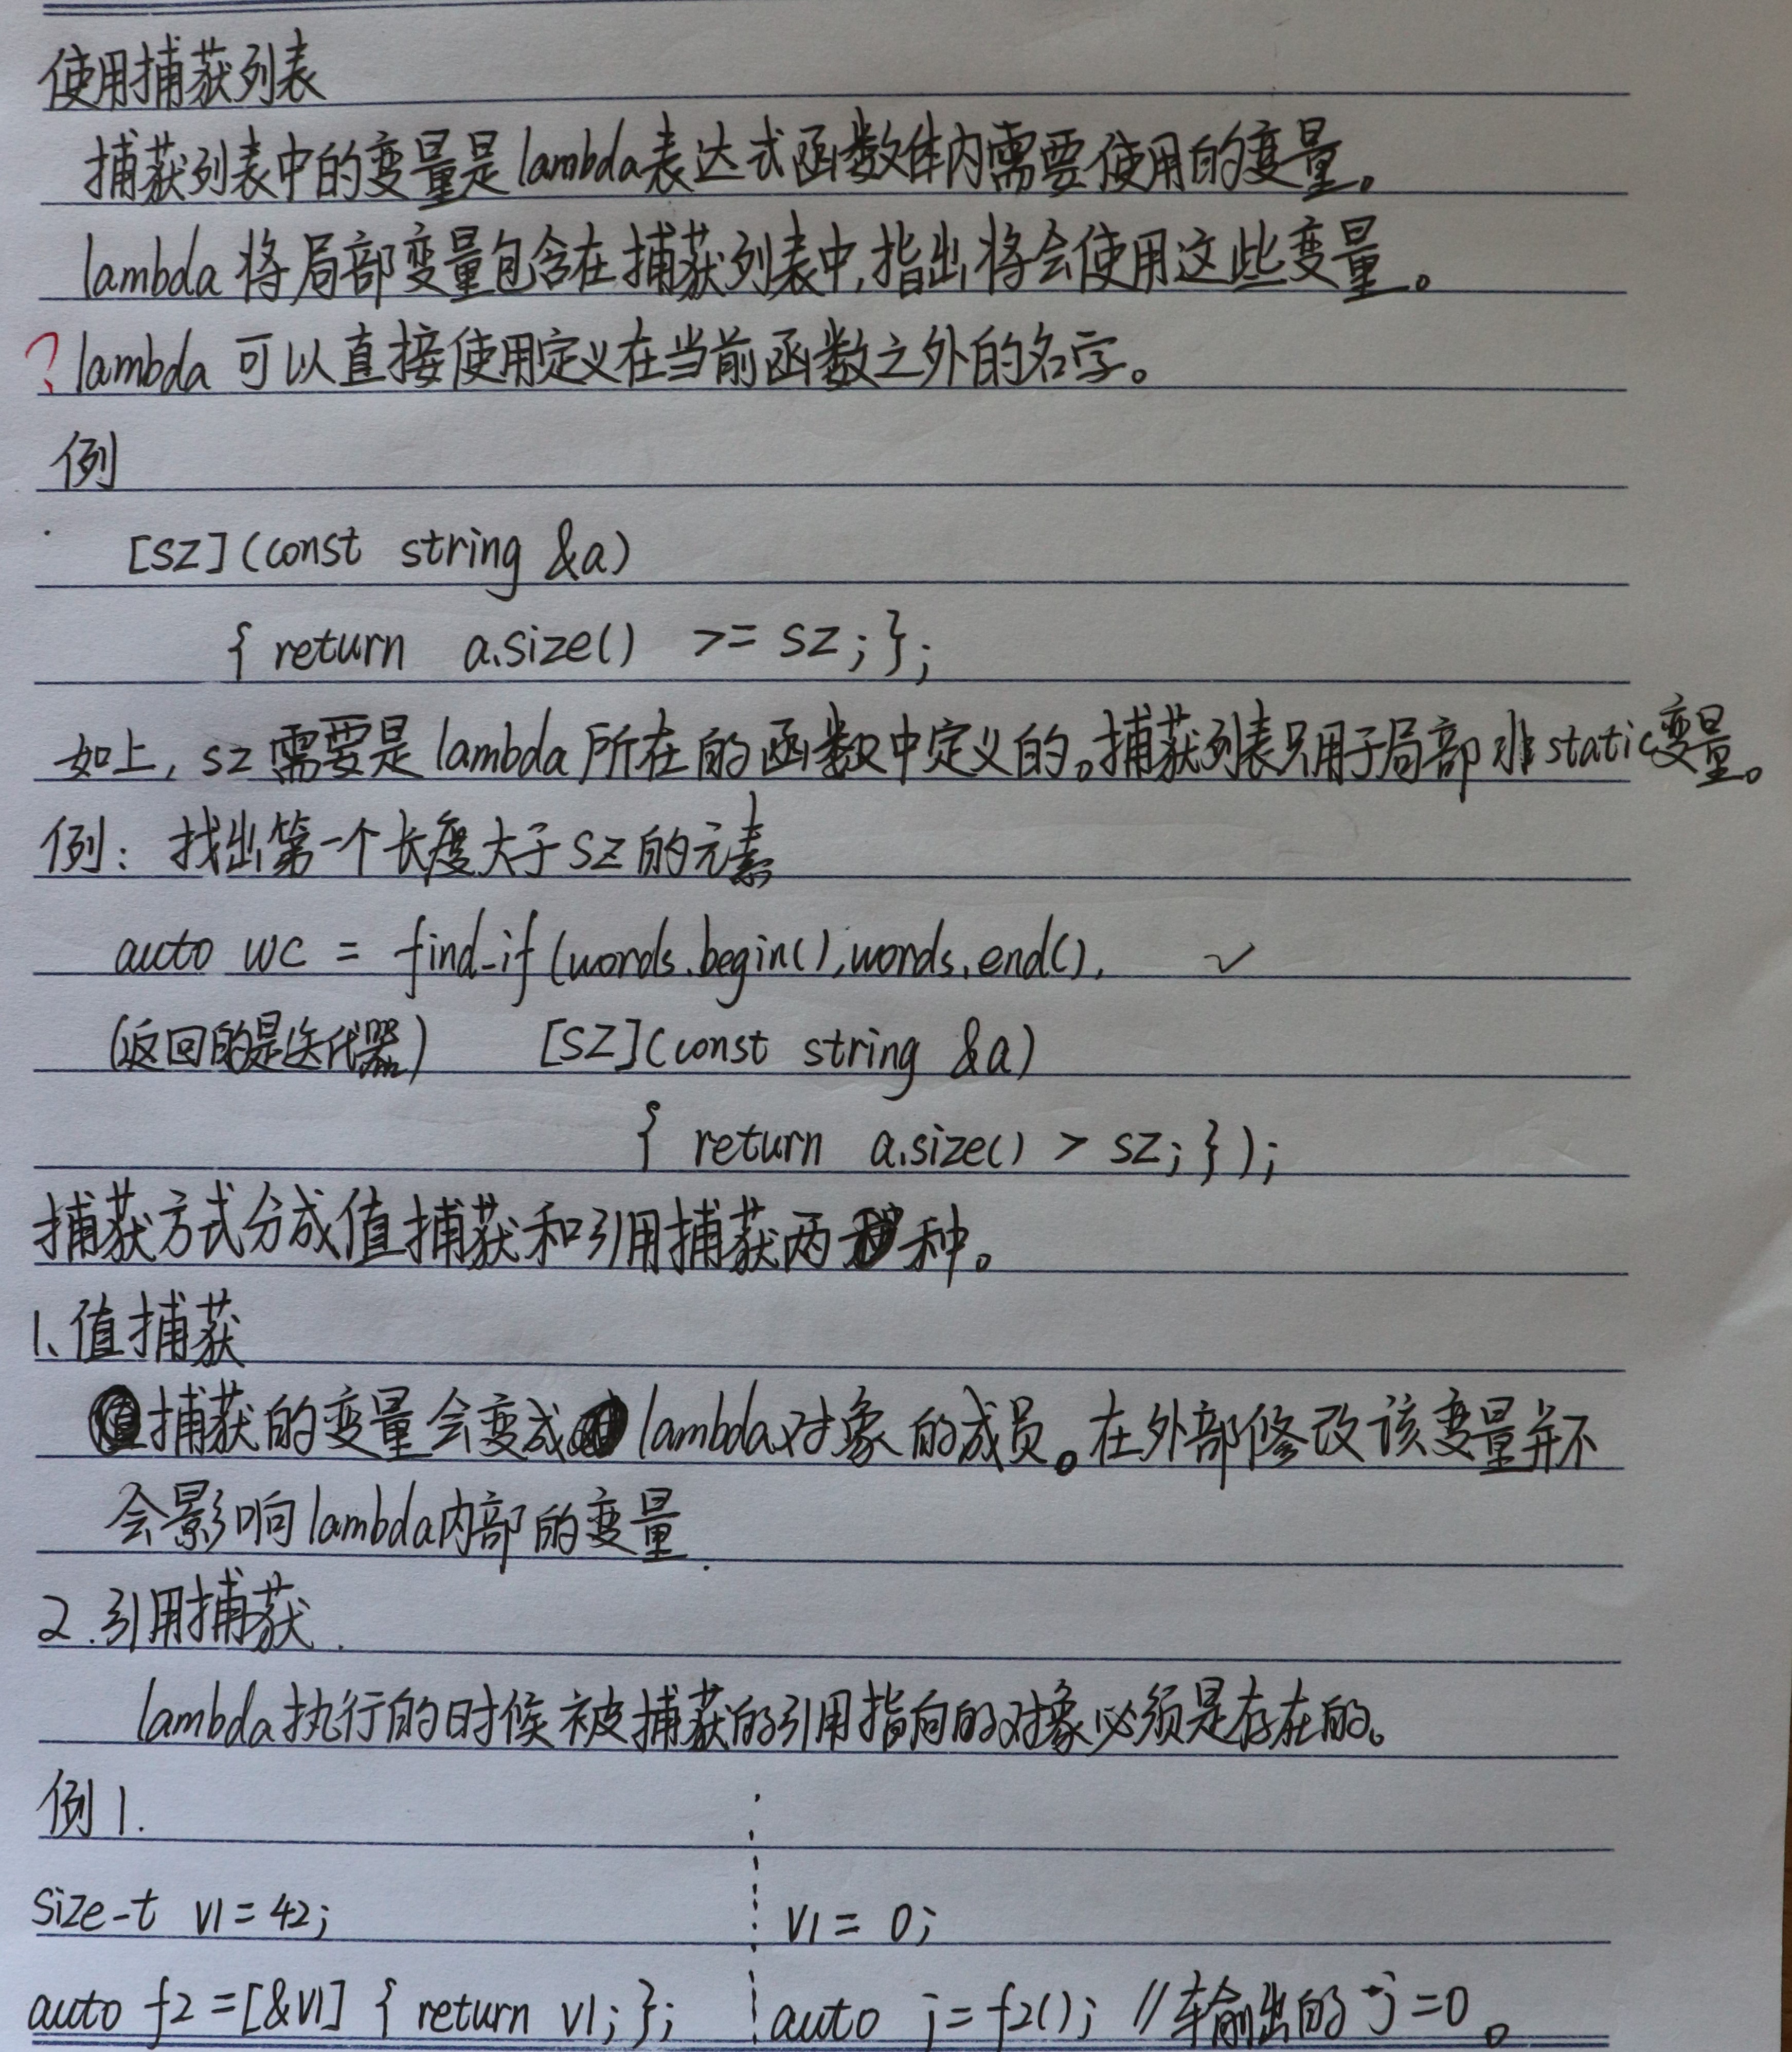 使用捕获列表
捕获列表中的变量是lambda表达式函数体内需要使用的变量。
lambda将局部变量包含在捕获列表中,指出将会使用这些变量。
? lambda 可以直接使用定义在当前函数之外的名字。
例
[sz](const string &a)
{ return a.size() >= sz; };
如上, sz需要是lambda所在的函数中定义的。捕获列表只用于局部非static变量。
例: 找出第一个长度大于sz的元素
auto wc = find_if(words.begin(),words.end(), ✓
(返回的是迭代器) [sz](const string &a)
{ return a.size() > sz; });
捕获方式分成值捕获和引用捕获两种。
1、值捕获
捕获的变量会变成lambda对象的成员。在外部修改该变量并不
会影响lambda内部的变量.
2.引用捕获.
lambda执行的时候被捕获的引用指向的对象必须是存在的。
例1.
size_t v1=42; v1 = 0;
auto f2 =[&v1] { return v1; }; auto j = f2(); //输出的j=0。